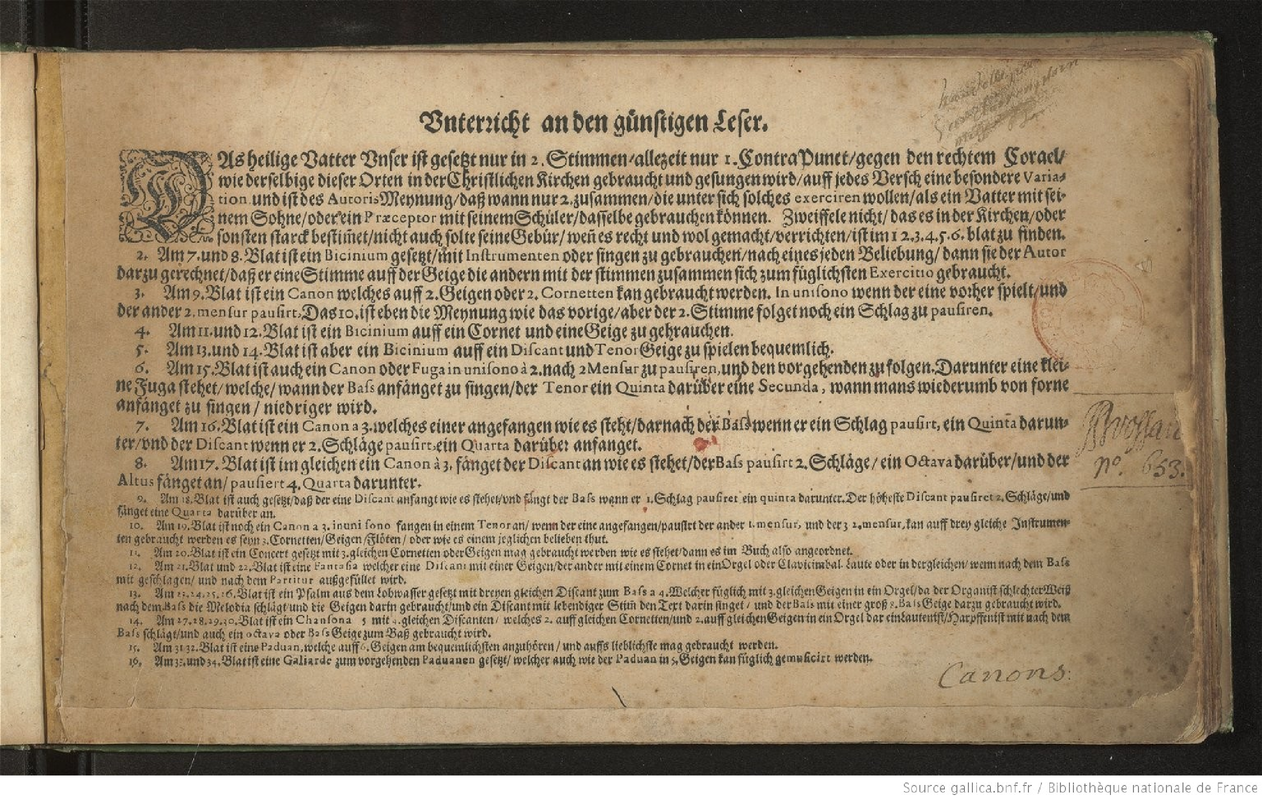 Vnterricht an den günstigen Leser.
DAs heilige Vatter Vnser ist gesetzt nur in 2. Stimmen/allezeit nur 1. ContraPunct/gegen den rechtem Corael/
wie derselbige dieser Orten in der Christlichen Kirchen gebraucht und gesungen wird/auff jedes Versch eine besondere Varia-
tion und ist des Autoris Meynung/daß wann nur 2. zusammen/die unter sich solches exerciren wollen/als ein Vatter mit sei-
nem Sohne/oder ein Præceptor mit seinem Schüler/dasselbe gebrauchen können. Zweiffele nicht/das es in der Kirchen/oder
sonsten starck bestim̃et/nicht auch solte seine Gebür/weñ es recht und wol gemacht/verrichten/ist im 1 2. 3. 4. 5. 6. blat zu finden.
2. Am 7. und 8. Blat ist ein Bicinium gesetzt/mit Instrumenten oder singen zu gebrauchen/nach eines jeden Beliebung/dann sie der Autor
darzu gerechnet/daß er eine Stimme auff der Geige die andern mit der stimmen zusammen sich zum füglichsten Exercitio gebraucht.
3. Am 9. Blat ist ein Canon welches auff 2. Geigen oder 2. Cornetten kan gebraucht werden. In unisono wenn der eine vorher spielt/und
der ander 2. mensur pausirt, Das 10. ist eben die Meynung wie das vorige/aber der 2. Stimme folget noch ein Schlag zu pausiren.
4. Am 11. und 12. Blat ist ein Bicinium auff ein Cornet und eine Geige zu gebrauchen.
5. Am 13. und 14. Blat ist aber ein Bicinium auff ein Discant und Tenor Geige zu spielen bequemlich.
6. Am 15. Blat ist auch ein Canon oder Fuga in unisono à 2. nach 2 Mensur zu pausiren, und den vorgehenden zu folgen. Darunter eine klei-
ne Fuga stehet/welche/wann der Bass anfänget zu singen/der Tenor ein Quinta darüber eine Secunda, wann mans wiederumb von forne
anfänget zu singen/ niedriger wird.
7. Am 16. Blat ist ein Canon a 3. welches einer angefangen wie es steht/darnach der Bass wenn er ein Schlag pausirt, ein Quinta darun-
ter/vnd der Discant wenn er 2. Schläge pausirt, ein Quarta darüber anfanget.
8. Am 17. Blat ist im gleichen ein Canon à 3. fänget der Discant an wie es stehet/der Bass pausirt 2. Schläge/ein Octava darüber/und der
Altus fänget an/ pausiert 4. Quarta darunter.
9. Am 18. Blat ist auch gesetzt/daß der eine Discant anfangt wie es stehet/vnd fängt der Bass wann er 1. Schlag pausiret ein quinta darunter. Der höheste Discant pausiret 2. Schläge/und
fänget eine Quarta darüber an.
10. Am 19. Blat ist noch ein Canon a 3. in unisono fangen in einem Tenor an/ wenn der eine angefangen/pausirt der ander 1. mensur, und der 3 2. mensur, kan auff drey gleiche Instrumen-
ten gebraucht werden es seyn 3. Cornetten/Geigen/Flöten/ oder wie es einem jeglichen belieben thut.
11. Am 20. Blat ist ein Concert gesetzt mit 3. gleichen Cornetten oder Geigen mag gebraucht werden wie es stehet/dann es im Buch also angeordnet.
12. Am 21. Blat und 22. Blat ist eine Fantasia welcher eine Discant mit einer Geigen/der ander mit einem Cornet in ein Orgel oder Clavicimbal Laute oder in dergleichen/ wenn nach dem Bass
mit geschlagen/ und nach dem Partitur außgefüllet wird.
13. Am 23. 24. 25. 26. Blat ist ein Psalm aus dem Lobwasser gesetzt mit dreyen gleichen Discant zum Bass a 4. Welcher füglich mit 3. gleichen Geigen in ein Orgel/da der Organist schlechter Weiß
nach dem Bass die Melodia schlägt/und die Geigen darin gebraucht/und ein Discant mit lebendiger Stim̃ den Text darin singet/ und der Bass mit einer groß 8. Bass Geige darzu gebraucht wird.
14. Am 27. 28. 29. 30. Blat ist ein Chansona 5 mit 4. gleichen Discanten/ welches 2. auff gleichen Cornetten/und 2. auff gleichen Geigen in ein Orgel dar ein Lautenist/Harpffenist mit nach dem
Bass schlägt/und auch ein octava oder Bass Geige zum Baß gebraucht wird.
15. Am 31. 32. Blat ist eine Paduan, welche auff 6. Geigen am bequemlichsten anzuhören / und auffs lieblichste mag gebraucht werden.
16. Am 33. und 34. Blat ist eine Galiarde zum vorgehenden Paduanen gesetzt/ welcher auch wie der Paduan in 5. Geigen kan füglich gemusicirt werden.
nº. 653.
Canons.
Source gallica.bnf.fr / Bibliothèque nationale de France